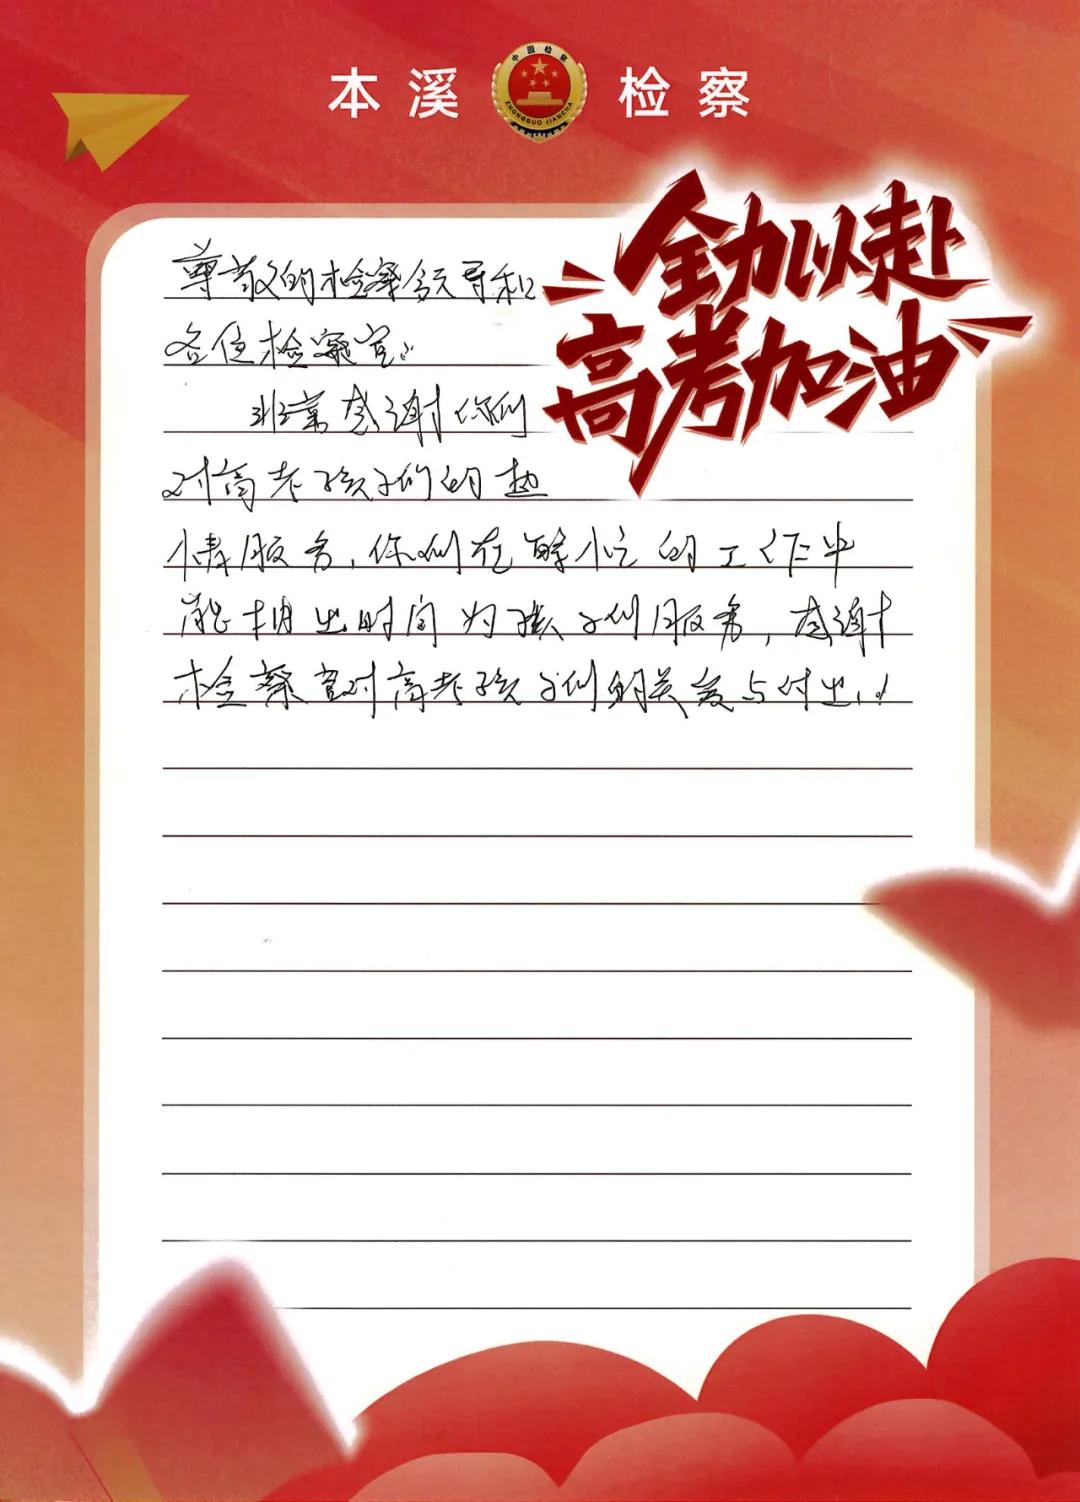 本溪 检察
中国检察
ZHONGGUO JIANCHA
全力以赴
高考加油
尊敬的检察领导和
各位检察官:
非常感谢你们
对高考孩子们的热
情服务,你们在繁忙的工作中
能抽出时间为孩子们服务,感谢
检察官对高考孩子们的关爱与付出!